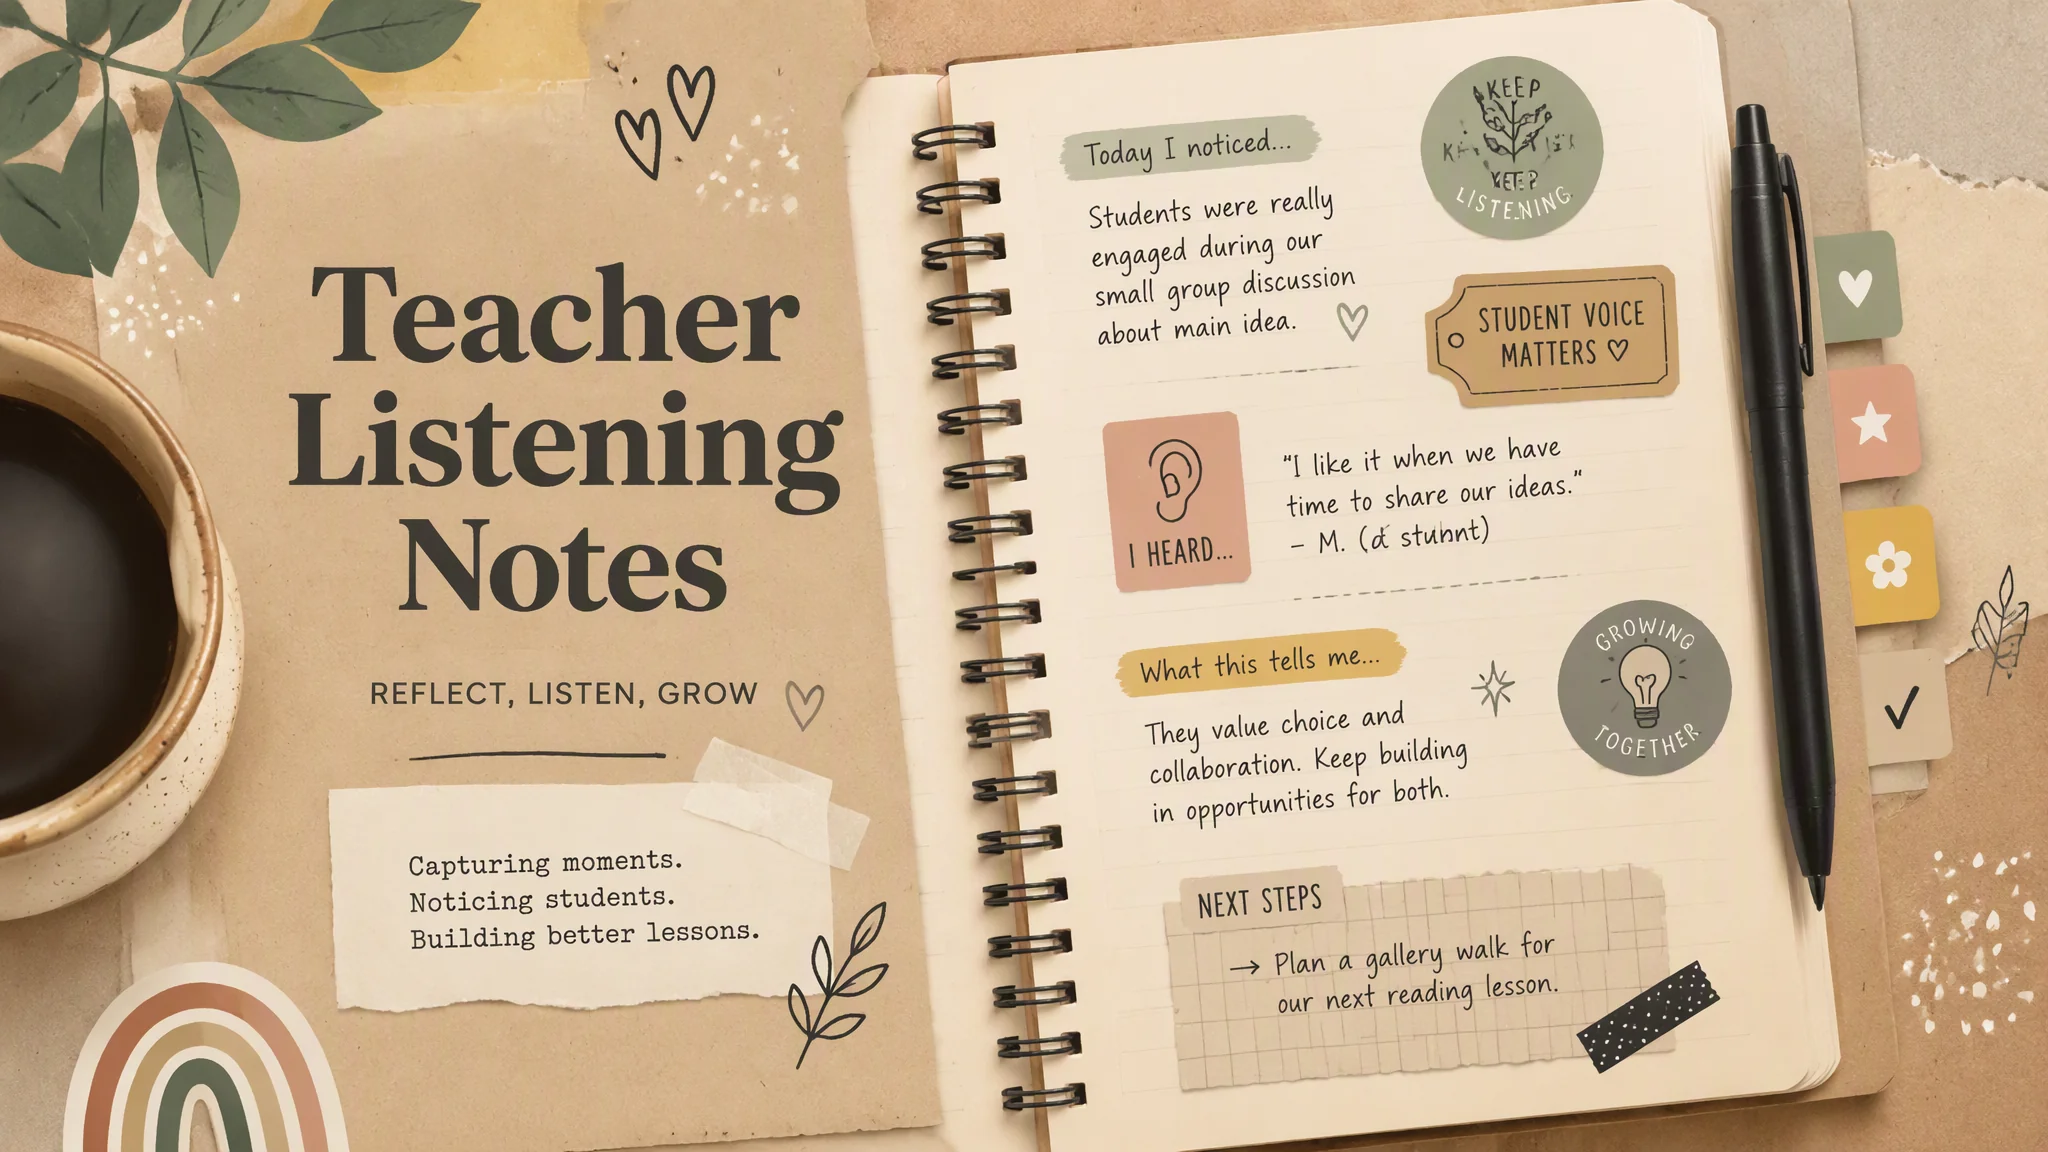 Teacher
Listening
Notes
REFLECT, LISTEN, GROW
Capturing moments.
Noticing students.
Building better lessons.
Today I noticed...
Students were really
engaged during our
small group discussion
about main idea.
KEEP
KEEP
LISTENING
STUDENT VOICE
MATTERS
I HEARD...
"I like it when we have
time to share our ideas."
– M.
What this tells me...
They value choice and
collaboration. Keep building
in opportunities for both.
GROWING
TOGETHER
NEXT STEPS
→ Plan a gallery walk for
our next reading lesson.